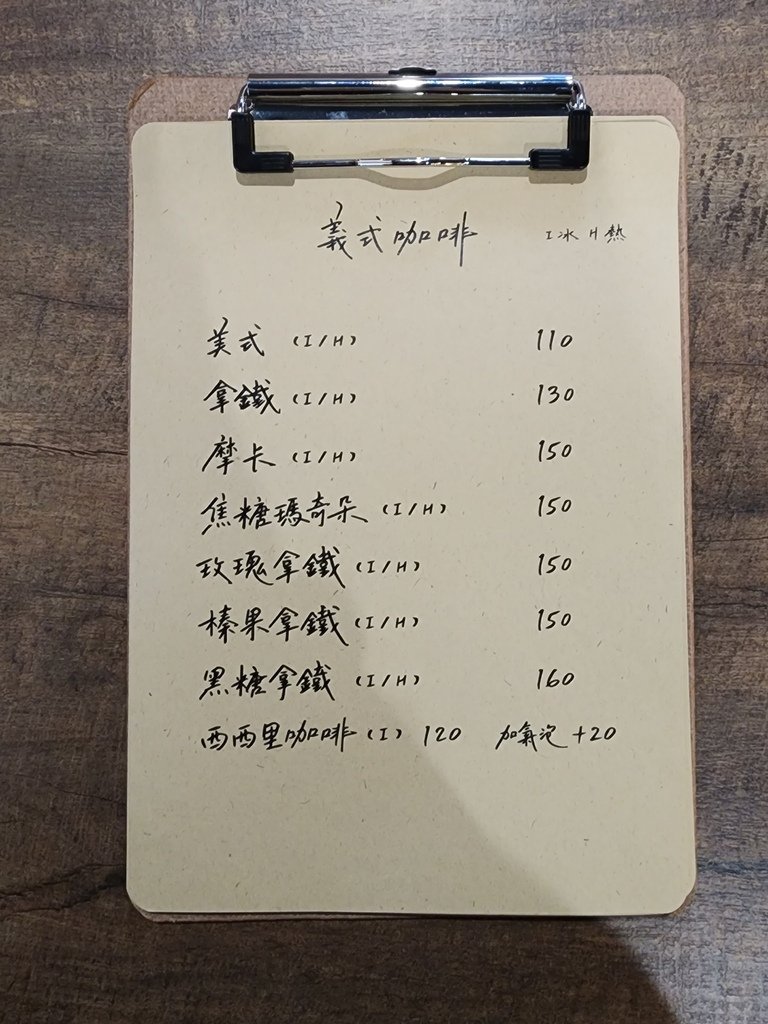 義式咖啡 I冰 H熱
美式 (I/H) 110
拿鐵 (I/H) 130
摩卡 (I/H) 150
焦糖瑪奇朵 (I/H) 150
玫瑰拿鐵 (I/H) 150
榛果拿鐵 (I/H) 150
黑糖拿鐵 (I/H) 160
西西里咖啡 (I) 120 加氣泡 +20